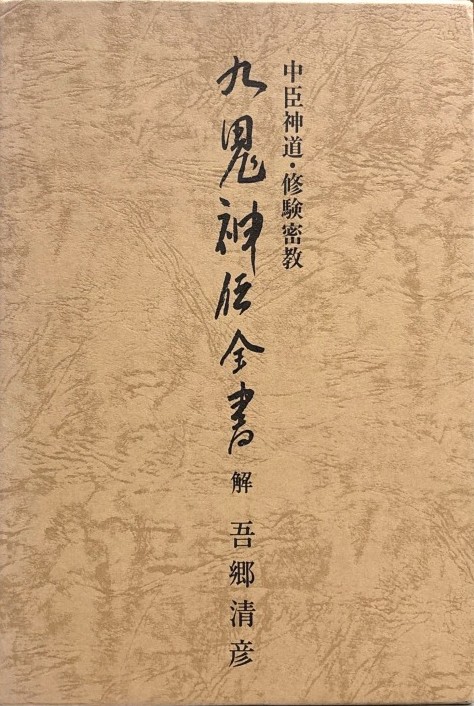 中臣神道・修験密教
九鬼神伝全書
解 吾郷清彦